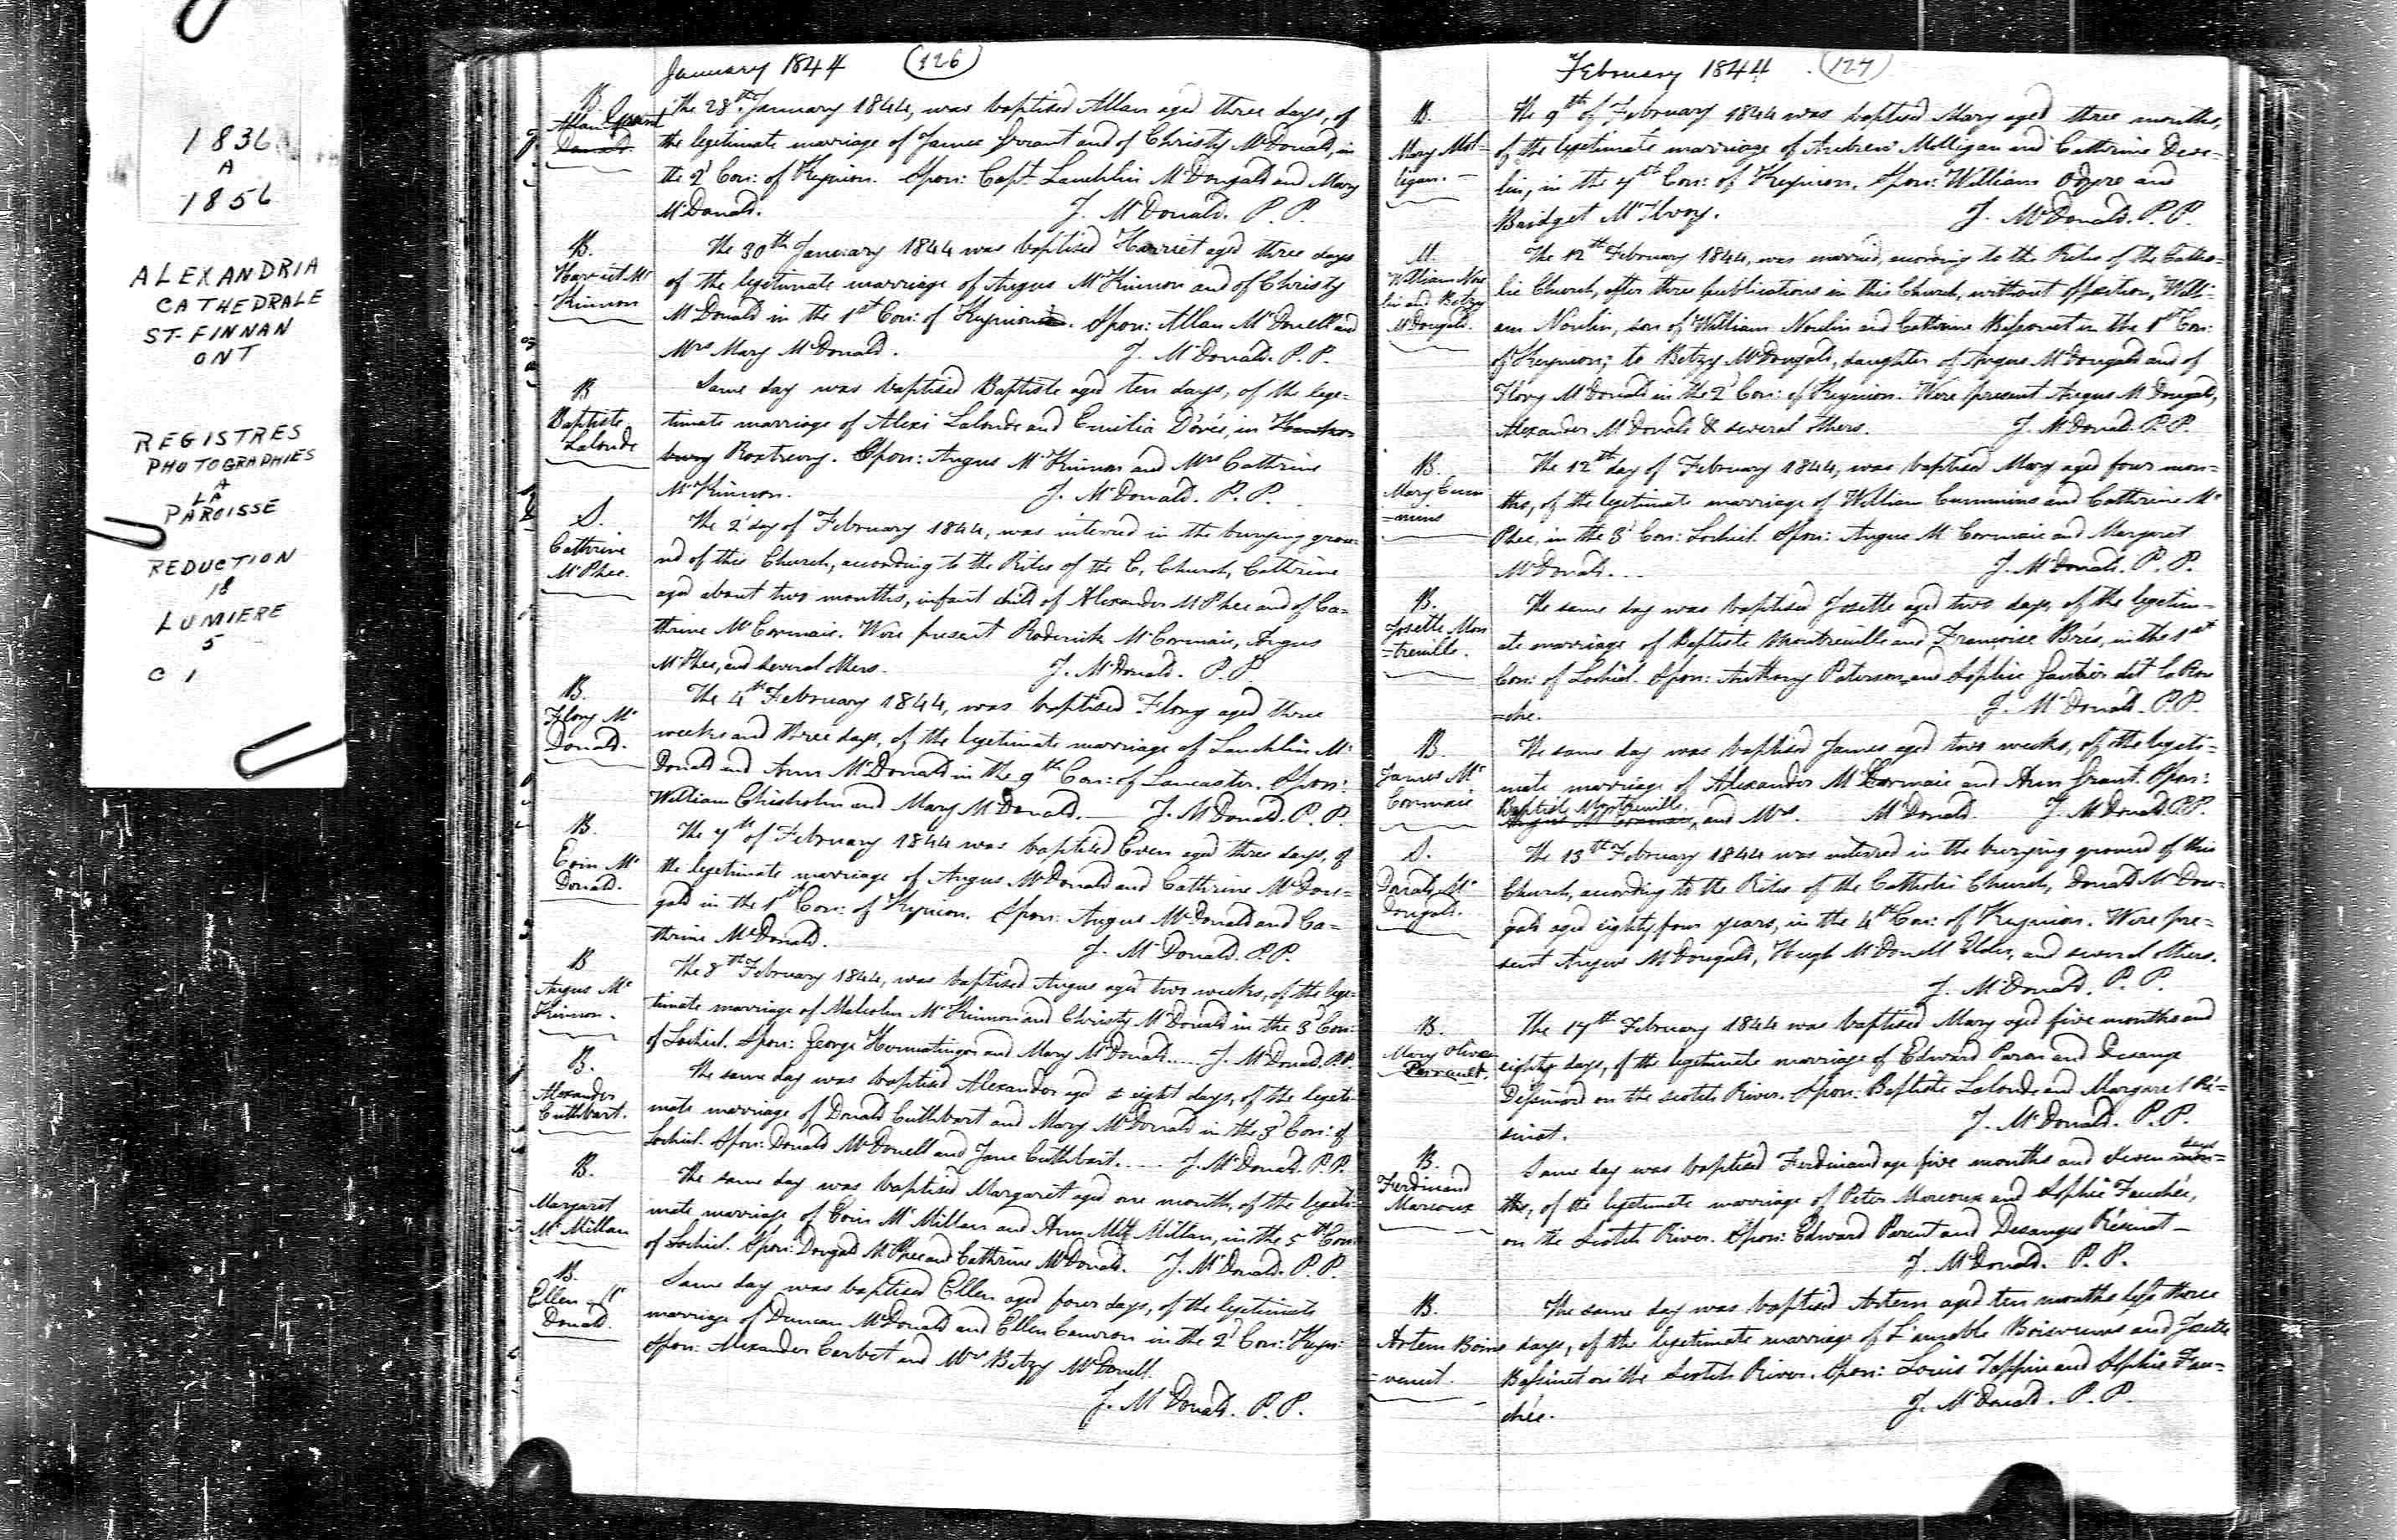 1836
A
1856
ALEXANDRIA
CATHEDRALE
ST. FINNAN
ONT
REGISTRES
PHOTOGRAPHIES
A
LA
PAROISSE
REDUCTION
18
LUMIERE
5
C 1
January 1844 (126)
B.
Allan Grant
Donald.
The 28th January 1844, was baptised Allan aged three days, of
the legitimate marriage of James Grant and of Christy McDonald, in
the 2d Con: of Kenyion. Spon: Capt. Lauchlin McDougald and Mary
McDonald. J. McDonald. P. P.
B.
Harriet Mc
Kinnon
The 30th January 1844 was baptised Harriet aged three days
of the legitimate marriage of Angus McKinnon and of Christy
McDonald in the 1st Con: of Kenyion. Spon: Allan McDonell and
Mrs Mary McDonald. J. McDonald. P. P.
B
Baptiste
Lalonde
Same day was baptised Baptiste aged ten days, of the lege=
timate marriage of Alexi Lalonde and Emilia in Hawkes
bury Spon: Angus McKinnon and Mrs Cathrine
McKinnon. J. McDonald. P. P.
S.
Cathrine
McPhee.
The 2d day of February 1844, was interred in the burying grou=
nd of this Church, according to the Rites of the C. Church, Cathrine
aged about two months, infant child of Alexander McPhee and of Ca=
thrine McCormaic. Were present Roderick McCormaic, Angus
McPhee, and several others. J. McDonald. P. P.
B.
Flory Mc
Donald.
The 4th February 1844, was baptised Flory aged three
weeks and three days, of the legitimate marriage of Lauchlin Mc
Donald and Ann McDonald in the 9th Con: of Lancaster. Spon:
William Chisholm and Mary McDonald. J. McDonald. P. P.
B.
Evin Mc
Donald.
The 7th of February 1844 was baptised Even aged three days, of
the legetimate marriage of Angus McDonald and Cathrine McDou=
gald in the 1st Con: of Kenyion. Spon: Angus McDonald and Ca=
thrine McDonald. J. McDonald. P. P.
B
Angus Mc
Kinnon.
The 8th February 1844, was baptised Angus aged two weeks, of the lege=
timate marriage of Malcolm McKinnon and Christy McDonald in the 3d Con:
of Lochiel. Spon: George and Mary McDonald. J. McDonald. P.P.
B.
Alexander
Cuthbart.
The same day was baptised Alexander aged eight days, of the legeti=
mate marriage of Donald Cuthbart and Mary McDonald in the 3d Con: of
Lochiel. Spon: Donald McDonell and Jane Cuthbart. J. McDonald. P. P.
B.
Margaret
McMillan
The same day was baptised Margaret aged one month, of the legeti=
mate marriage of Evin McMillan and Ann McMillan, in the 5th Con:
of Lochiel. Spon: Dougald McPhee and Cathrine McDonald. J. McDonald. P. P.
B.
Ellen Mc
Donald.
Same day was baptised Ellen aged four days, of the legetimate
marriage of Duncan McDonald and Ellen Cameron in the 2d Con: Keyn:
Spon: Alexander Corbet and Mrs Betzy McDonell.
J. McDonald. P. P.
February 1844 (127)
B.
Mary Mol=
ligan.
The 9th of February 1844 was baptised Mary aged three months,
of the legetimate marriage of Andrew Molligan and Cathrine Deve=
lin, in the 7th Con: of Kenyion. Spon: William and
Bridget McIlvoy. J. McDonald. P. P.
M.
William Nou
lin and Betzy
McDougald.
The 12th February 1844, was married, according to the Rites of the Catho=
lic Church, after three publications in this Church, without opposition, Willi=
am Noulin, son of William Noulin and Cathrine Bissonet in the 1st Con:
of Kenyion; to Betzy McDougald, daughter of Angus McDougald and of
Flory McDonald in the 2d Con: of Kenyion. Were present Angus McDougald,
Alexander McDonald & several others. J. McDonald. P. P.
B.
Mary Cum
=mins
The 12th day of February 1844, was baptised Mary aged four mon=
ths, of the legetimate marriage of William Cummins and Cathrine Mc
Phee, in the 3d Con: Lochiel. Spon: Angus McCormaic and Margaret
McDonald. J. McDonald. P. P.
B.
Josette Mon
=treuille.
The same day was baptised Josette aged two days, of the legetim=
ate marriage of Baptiste Montreuille and Françoise Brés, in the 1st
Con: of Lochiel. Spon: Anthony Paterson and Sophie Gautier dit LaRou
=che. J. McDonald. P. P.
B.
James Mc
Cormaic
The same day was baptised James aged two weeks, of the legeti=
mate marriage of Alexander McCormaic and Ann Grant. Spon:
Baptiste Montreuille
Angus McCormaic, and Mrs. McDonald. J. McDonald. P.P.
S.
Donald Mc
Dougald.
The 13th February 1844 was interred in the burying ground of this
Church, according to the Rites of the Catholic Church, Donald McDou=
gald aged eighty four years, in the 4th Con: of Kenyion. Were pre=
sent Angus McDougald, Hugh McDonell Elder, and several others.
J. McDonald. P. P.
B.
Mary Olive
Parrault.
The 17th February 1844 was baptised Mary aged five months and
eight days, of the legetimate marriage of Edward Paran and Desange
on the Scotch River. Spon: Baptiste Lalonde and Margaret Ré=
sinat. J. McDonald. P. P.
B.
Ferdinand
Marcoux
Same day was baptised Ferdinand age five months and seven days mon=
ths, of the legetimate marriage of Peter Marcoux and Sophie Fauchée,
on the Scotch River. Spon: Edward Parent and Desanges Résinat
J. McDonald. P. P.
B.
Artem Boins
=venut.
The same day was baptised Artem aged ten months less three
days, of the legetimate marriage of L'amable and Josette
Bassinet on the Scotch River. Spon: Louis Toppin and Sophie Fau=
chée. J. McDonald. P. P.